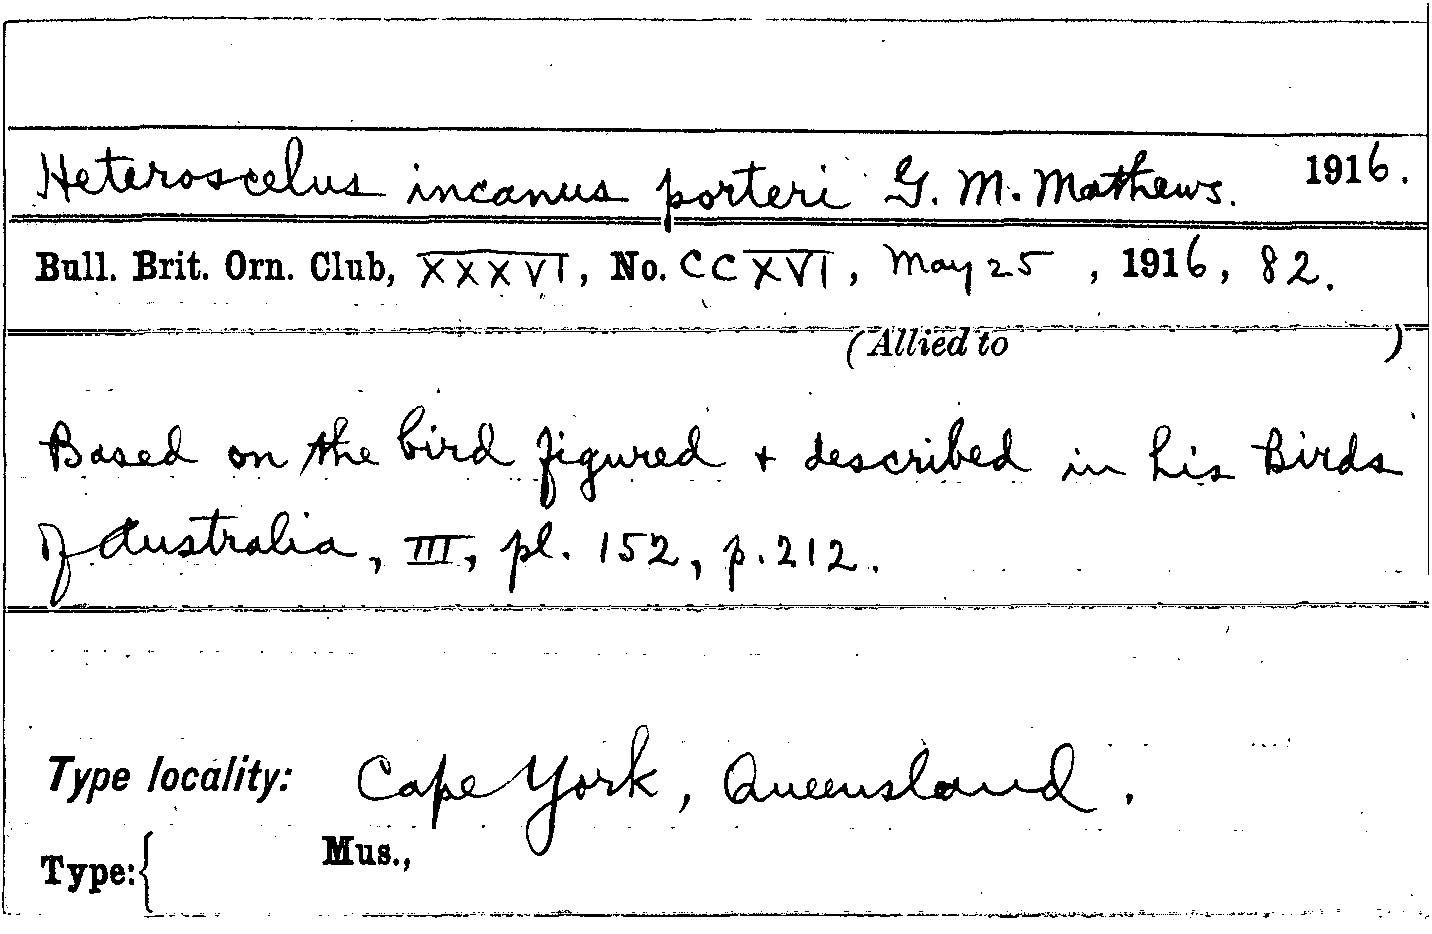 Heteroscelus incanus porteri G. M. Mathews. 1916.
Bull. Brit. Orn. Club, XXXVI, No. CCXVI, May 25, 1916, 82.
(Allied to )
Based on the bird figured + described in his Birds
of Australia, III, pl. 152, p. 212.
Type locality: Cape York, Queensland.
Mus.,
Type:{